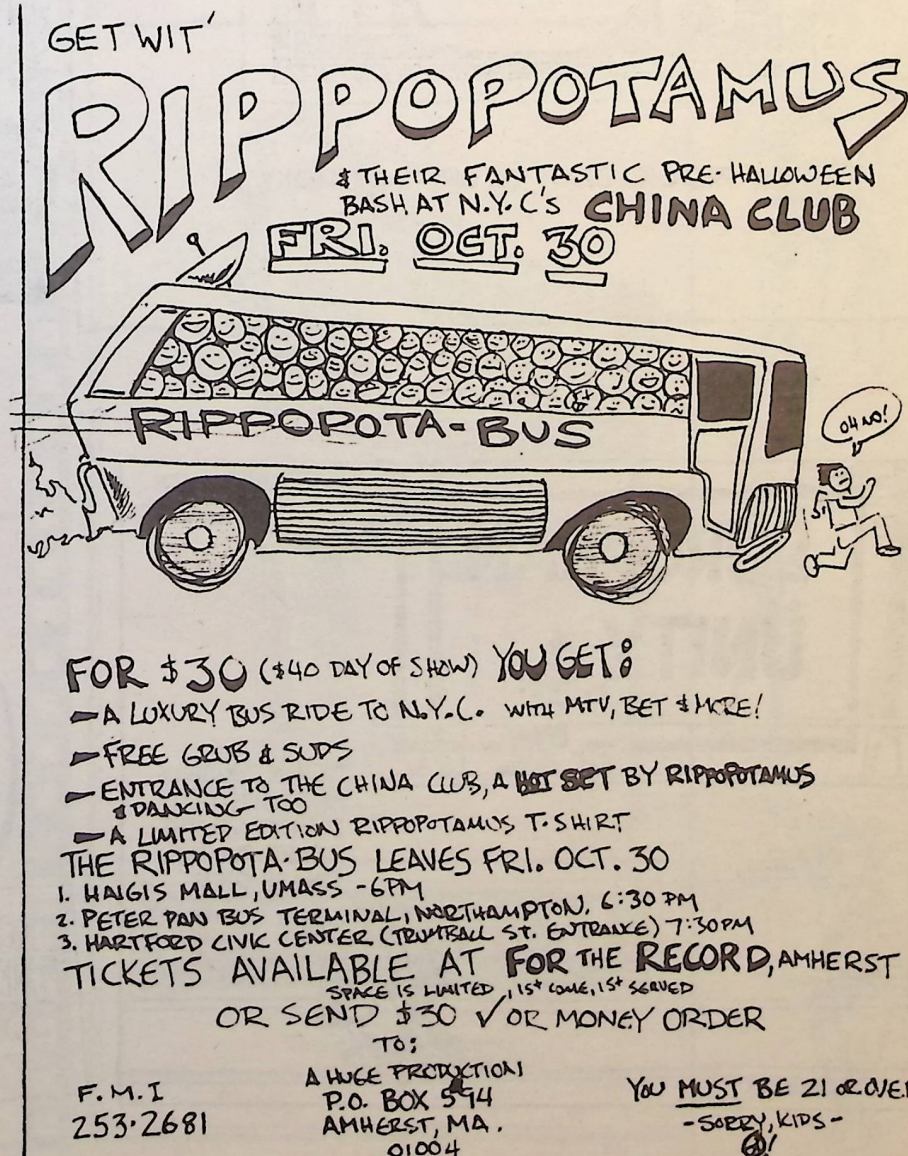 GET WIT'
RIPPOPOTAMUS
& THEIR FANTASTIC PRE-HALLOWEEN
BASH AT N.Y.C'S CHINA CLUB
FRI. OCT. 30
RIPPOPOTA-BUS
OH NO!
FOR $30 ($40 DAY OF SHOW) YOU GET:
- A LUXURY BUS RIDE TO N.Y.C. WITH MTV, BET & MORE!
- FREE GRUB & SUDS
- ENTRANCE TO THE CHINA CLUB, A HOT SET BY RIPPOPOTAMUS
& DANCING TOO
- A LIMITED EDITION RIPPOPOTAMUS T-SHIRT
THE RIPPOPOTA-BUS LEAVES FRI. OCT. 30
1. HAIGIS MALL, UMASS - 6PM
2. PETER PAN BUS TERMINAL, NORTHAMPTON, 6:30 PM
3. HARTFORD CIVIC CENTER (TRUMBALL ST. ENTRANCE) 7:30PM
TICKETS AVAILABLE AT FOR THE RECORD, AMHERST
SPACE IS LIMITED, 1st COME, 1st SERVED
OR SEND $30 ✓ OR MONEY ORDER
TO:
A HUGE PRODUCTION
P.O. BOX 594
AMHERST, MA.
01004
F.M.I
253-2681
YOU MUST BE 21 OR OVER
- SORRY, KIDS -